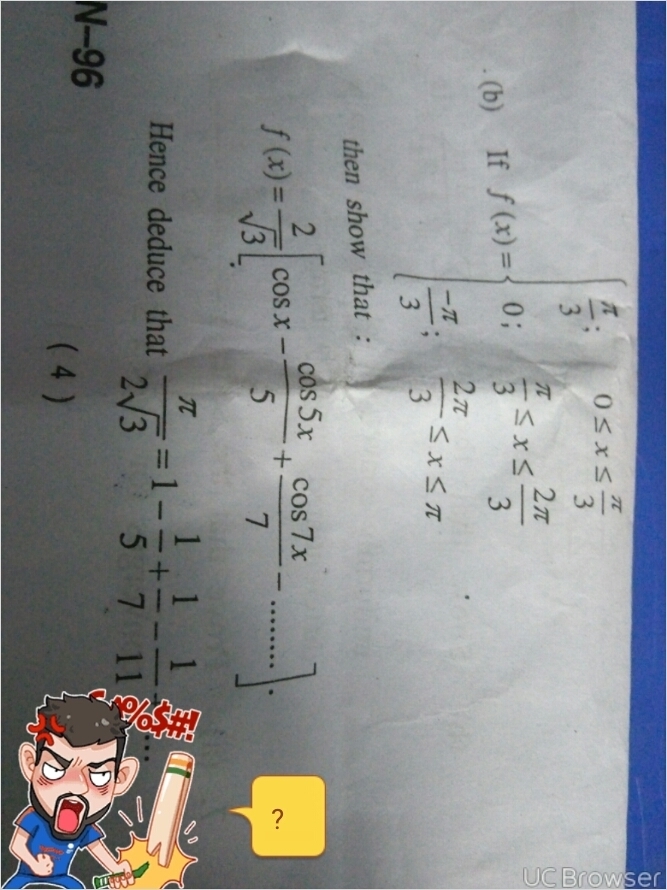 (b) If f(x) = { π/3; 0 ≤ x ≤ π/3
0; π/3 ≤ x ≤ 2π/3
-π/3; 2π/3 ≤ x ≤ π
then show that :
f(x) = 2/√3 [cos x - cos 5x/5 + cos 7x/7 - ........].
Hence deduce that π/2√3 = 1 - 1/5 + 1/7 - 1/11 ....
(4)
N-96
#$%
?
UC Browser